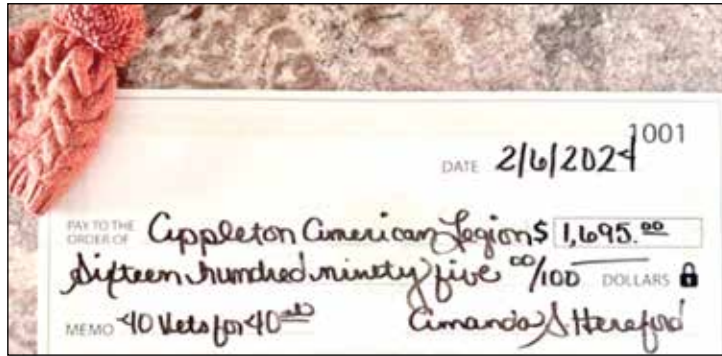 1001
DATE 2/6/2024
PAY TO THE ORDER OF Appleton American Legion $ 1,695.00
Sixteen hundred ninety five 00/100 DOLLARS
MEMO 40 Vets for 40 Amanda S Hereford